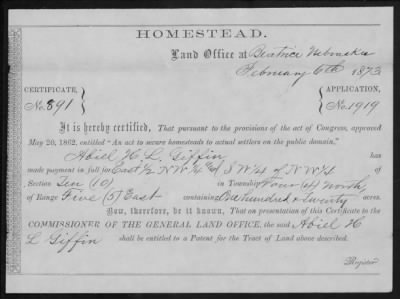 HOMESTEAD.
Land Office at Beatrice Nebraska
February 6th 1873
CERTIFICATE, APPLICATION,
No. 891 No. 1919
It is hereby certified, That pursuant to the provisions of the act of Congress, approved
May 20, 1862, entitled "An act to secure homesteads to actual settlers on the public domain,"
Abiel H. L. Giffin has
made payment in full for East ½ NW¼ & SW¼ of NW¼ of
Section Ten (10) in Township Four (4) North,
of Range Five (5) East containing One hundred & Twenty acres.
Now, therefore, be it known, That on presentation of this Certificate to the
COMMISSIONER OF THE GENERAL LAND OFFICE, the said Abiel H
L Giffin shall be entitled to a Patent for the Tract of Land above described.
Register.